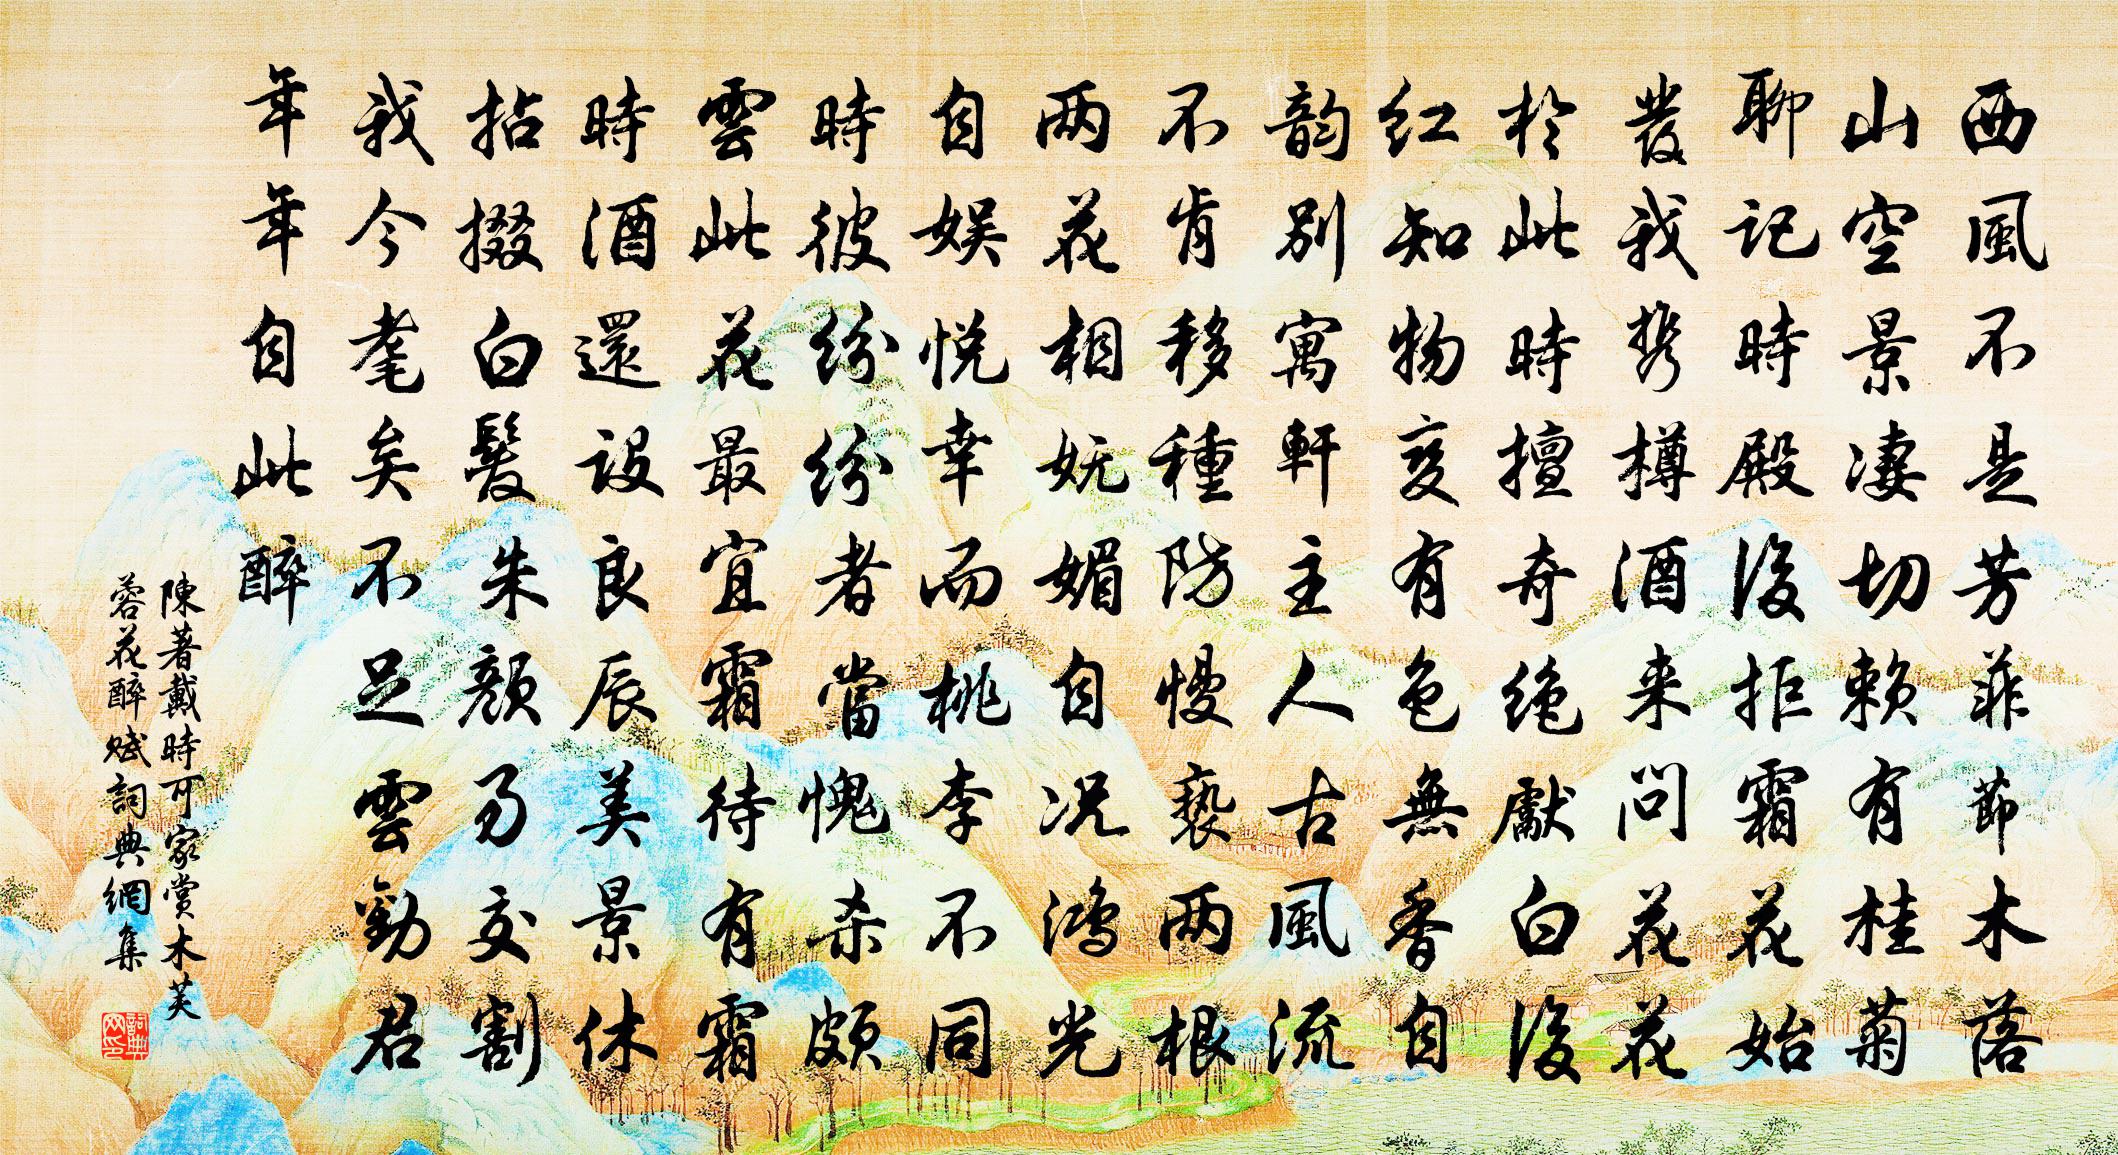 西風不是芳菲節木落
山空景凄切賴有桂菊
聊記時殿後拒霜花始
發我携樽酒来問花花
於此時擅奇絶獻白後
红知物变有色無香自
韵别寓軒主人古風流
不肯移種防慢亵两根
两花相妩媚自况鸿光
自娱悦幸而桃李不同
時彼紛紛者當愧杀颇
雲此花最宜霜待有霜
時酒還設良辰美景休
拈掇白髮朱顔易交割
我今耄矣不足雲勸君
年年自此醉
陳著戴時可家賞木芙
蓉花醉賦詞典網集